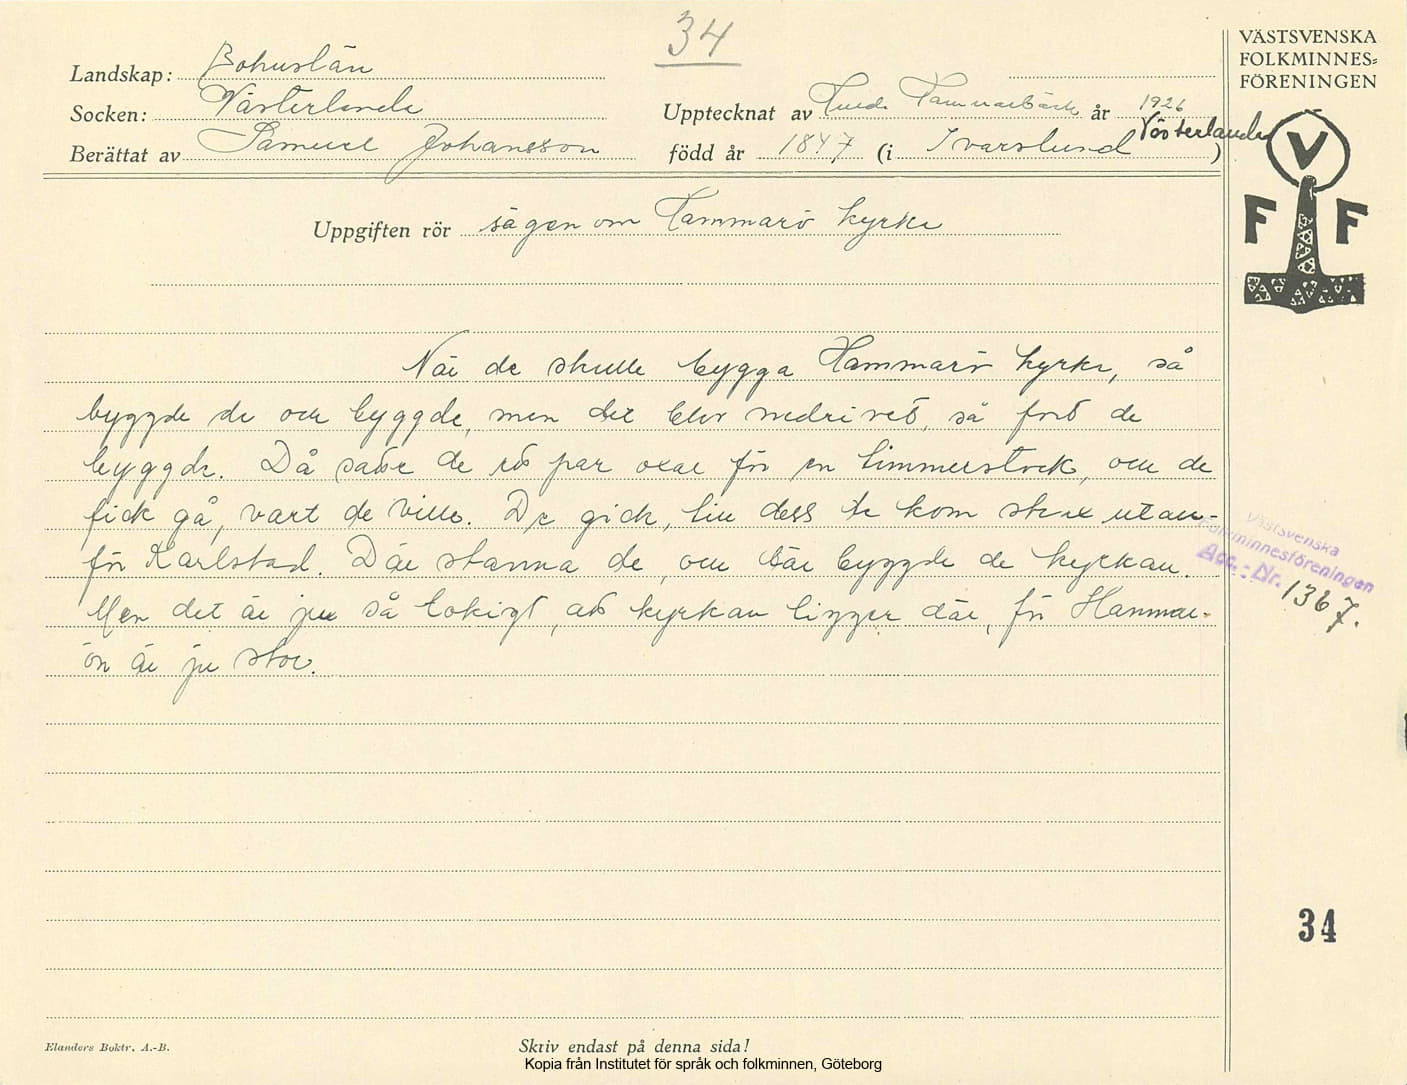 34
VÄSTSVENSKA
FOLKMINNES=
FÖRENINGEN
Landskap: Bohuslän
Socken: Västerlanda
Upptecknat av Hammarbäck år 1926
Berättat av Samuel Johansson född år 1847 (i Ivarslund Västerlanda)
V
F F
Uppgiften rör sägen om Hammarö kyrka
När de skulle bygga Hammarö kyrka, så
byggde de och byggde, men det blev nedrivet, så fort de
byggde. Då satte de ett par oxar för en timmerstock, och de
fick gå, vart de ville. De gick, till dess de kom strax utan-
för Karlstad. Där stanna de, och där byggde de kyrkan.
Men det är ju så tokigt, att kyrkan ligger där, för Hammar-
ön är ju stor.
Västsvenska
Folkminnesföreningen
Acc.-Nr. 1367.
34
Elanders Boktr. A.-B.
Skriv endast på denna sida!
Kopia från Institutet för språk och folkminnen, Göteborg